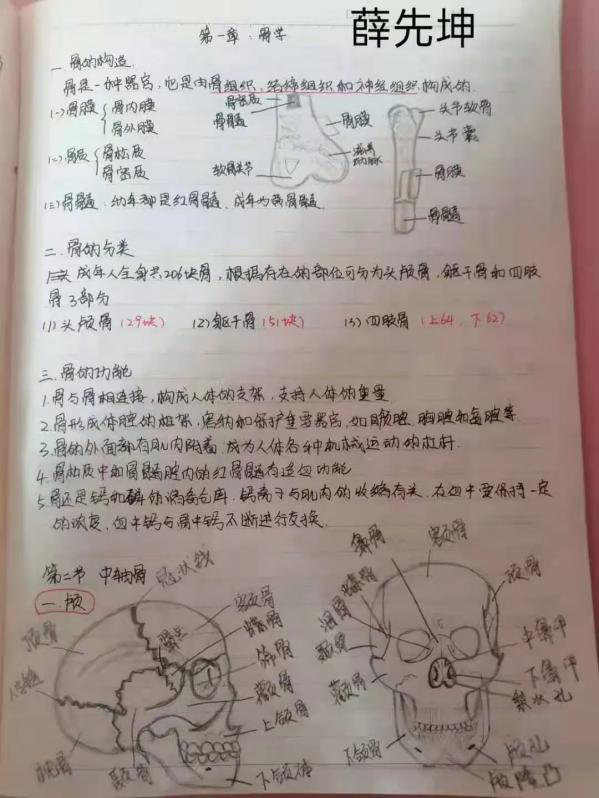 薛先坤
第一章：骨学
一.骨的构造.
骨是一种器官，他是由骨组织，结缔组织和神经组织构成的.
(一)骨膜 { 骨内膜
骨外膜
骨密质
骨髓
骨膜
滋养动脉
软骨关节
关节软骨
关节囊
骨膜
骨髓
(二)骨质 { 骨松质
骨密质
(三)骨髓：幼年都是红骨髓. 成年为黄骨髓.
二.骨的分类
成年人全身共206块骨，根据存在的部位可分为头颅骨，躯干骨和四肢
骨3部分
(1)头颅骨(29块) (2)躯干骨(51块) (3)四肢骨(上64、下62)
三.骨的功能
1.骨与骨相连接，构成人体的支架，支持人体的重量
2.骨形成体腔的框架，容纳和保护重要器官，如颅腔.胸腔和盆腔等
3.骨的外面都有肌肉附着.成为人体各种机械运动的杠杆.
4.骨松质中和骨髓腔内的红骨髓有造血功能
5.骨还是钙和磷的储备仓库.钙离子与肌肉的收缩有关.在血中要保持一定
的浓度，血中钙与骨中钙不断进行交换.
第二节 中轴骨
一.颅
冠状线
顶骨
翼点
额骨
蝶骨
筛骨
颧骨
上颌骨
下颌体
枕骨
颞骨
鼻骨
额骨
顶骨
颞骨
颧骨
下颌骨
中鼻甲
下鼻甲
梨状孔
颏孔
颏隆凸